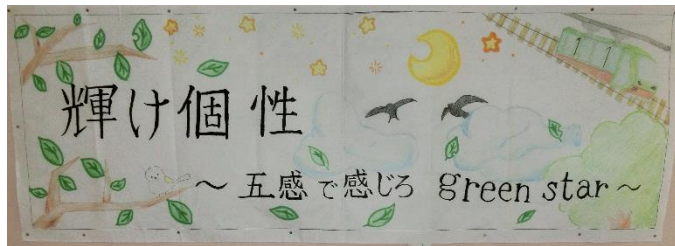 輝け個性
～五感で感じろ green star～